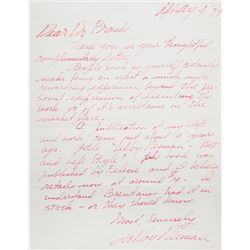 Dear Dr. Braud
Thank you for your thoughtful
complementary letter.
People such as yourself certainly
make being an artist a much more
rewarding experience beyond the per-
sonal expression of executing the
work or of its assistance in the
market place.
A publication of my life
and work came out about 3 years
ago. title LeRoy Neiman - Art
and Life Style. The book was
published by Felicie and I believe
retails now at around
understand Brentanos had it in
stock - or they should know.
Most Sincerely
LeRoy Neiman